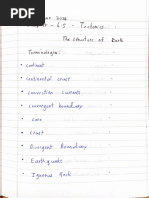 2024
Chapter - 6.5 - Tectonics
The structure of Earth
Terminologies:
• continent
• continental crust
• convection currents
• convergent boundary
• core
• crust
• Divergent Boundary
• Earthquake
• Igneous Rock